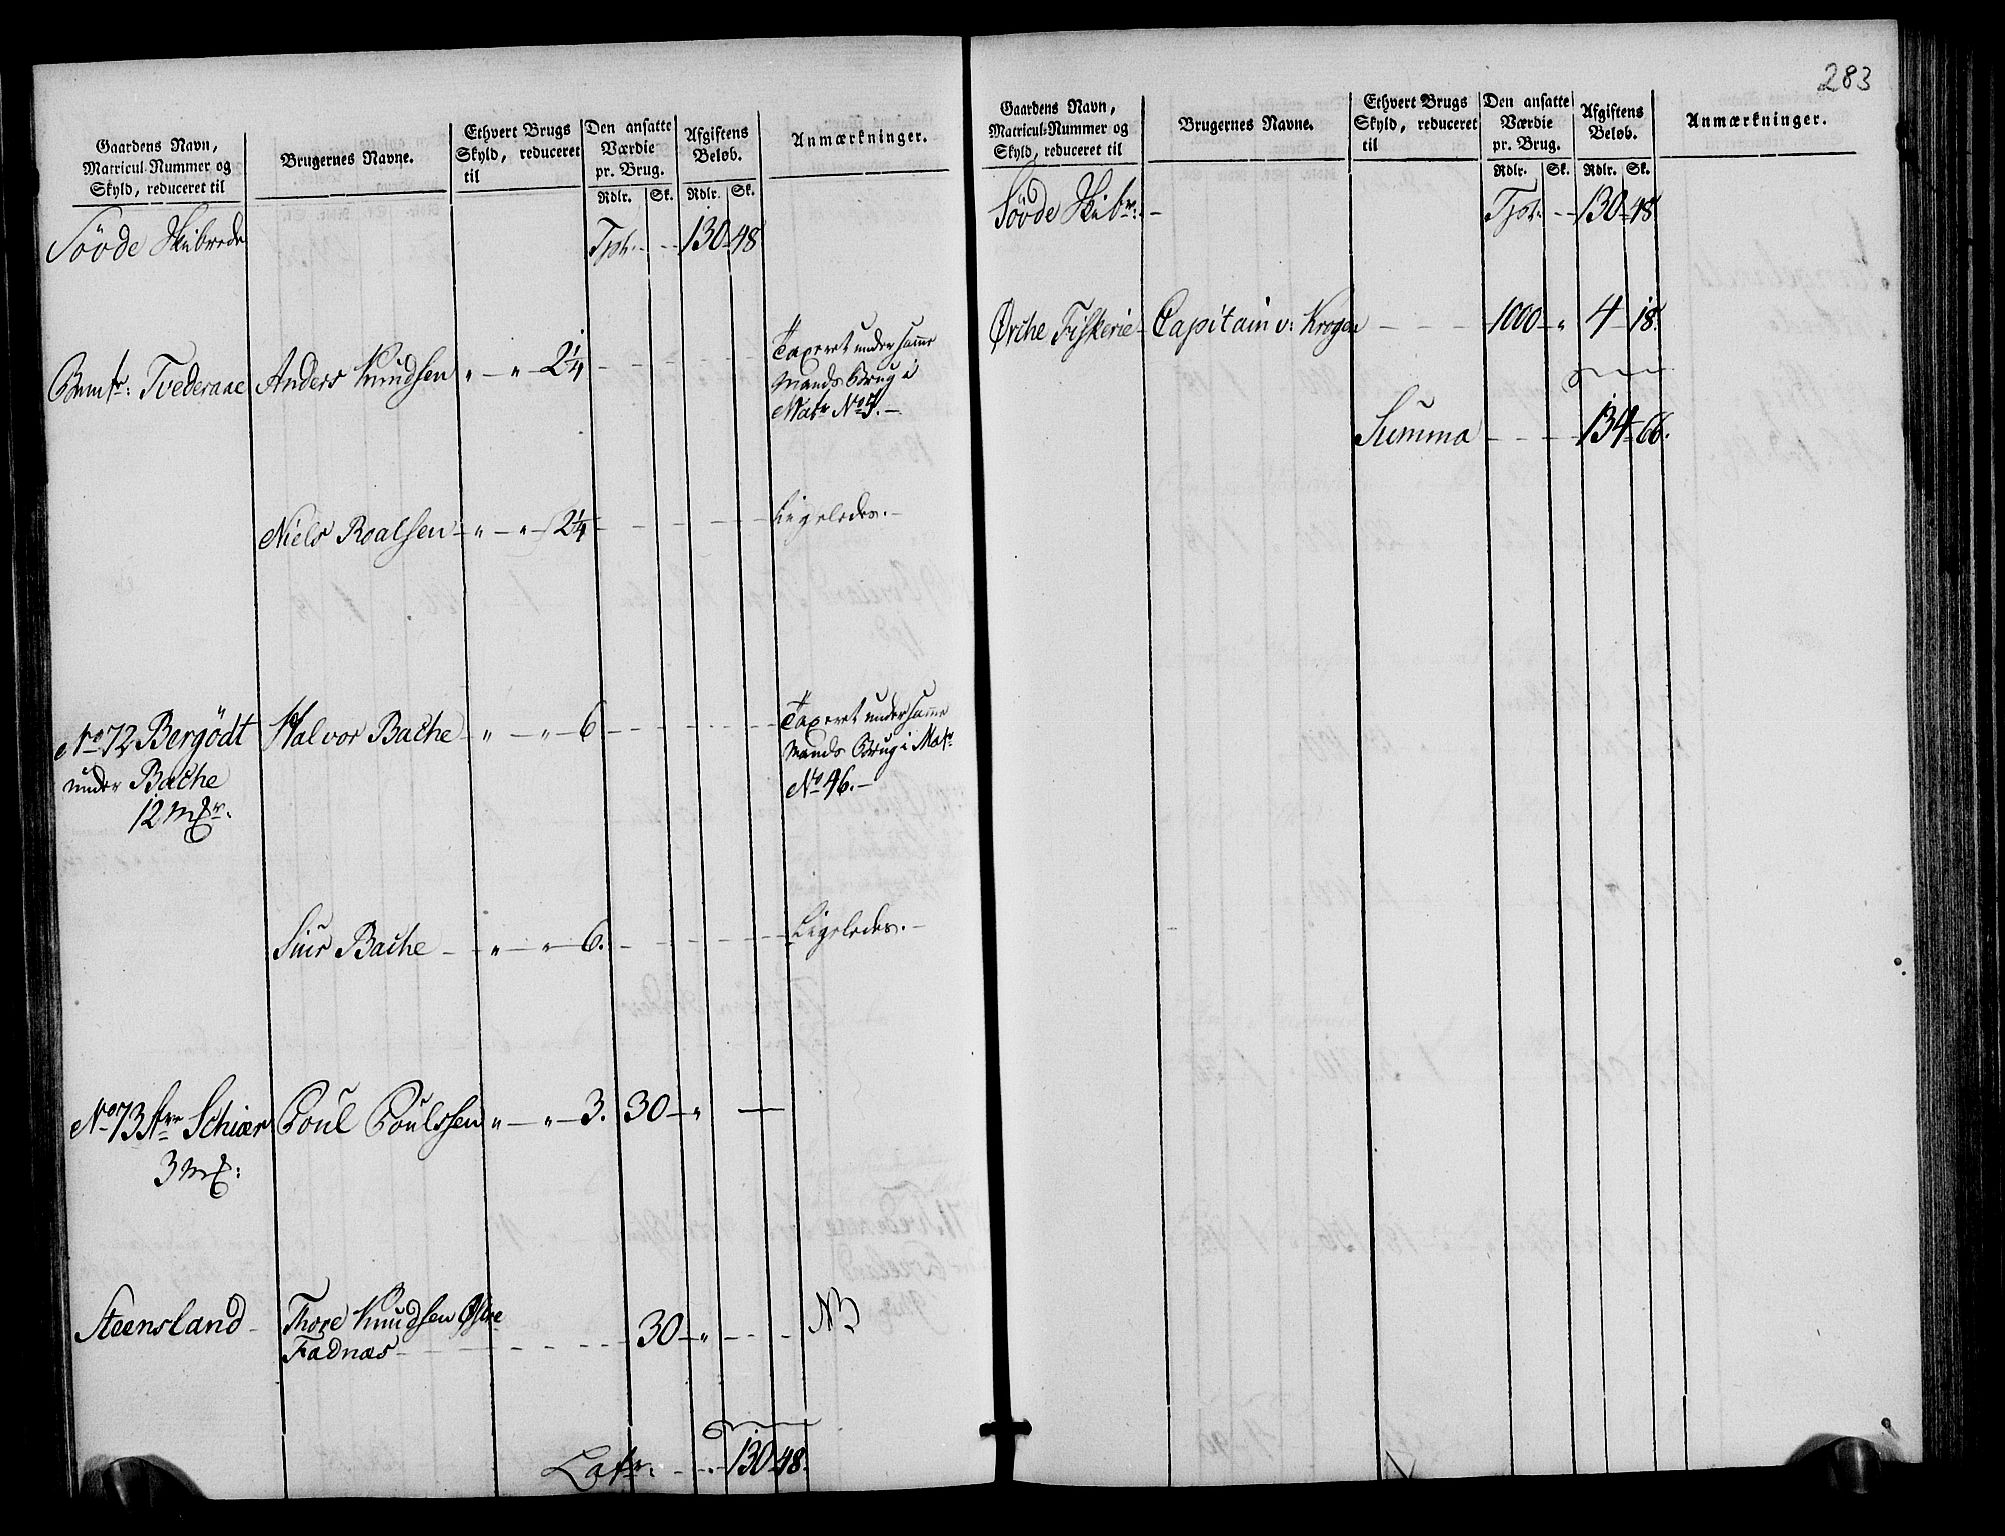 283
Gaardens Navn,
Matricul-Nummer og
Skyld, reduceret til
Brugernes Navne.
Ethvert Brugs
Skyld, reduceret
til
Den ansatte
Værdie
pr. Brug.
Rdlr. Sk.
Afgiftens
Beløb.
Rdlr. Sk.
Anmærkninger.
Sövde Skibrede Tpt. - - 130 - 48
Anders Knudsen " - " - 2 1/4 - - - - Taxeret under samme
Tvederaae Mands Brug i
Matr No 5. -
Niels Roalsen - " - " - 2 1/4 - - - - Ligeledes. -
No 72 Bergödt Halvor Bache - " - " - 6 - - - - Taxeret under samme
under Bache Mands Brug i Matr
12 No 46. -
Siur Bache - " - " - 6. - - - - Ligeledes. -
No 73 Schiær Poul Poulssen " - " - 3. 30 - " -
3
Steensland - Thore Knudsen Østre
Fadnæs - - - - 30 - " - - - NB
Latr: - - 130 - 48.
Gaardens Navn,
Matricul-Nummer og
Skyld, reduceret til
Brugernes Navne.
Ethvert Brugs
Skyld, reduceret
til
Den ansatte
Værdie
pr. Brug.
Rdlr. Sk.
Afgiftens
Beløb.
Rdlr. Sk.
Anmærkninger.
Sövde Skibr: - Tpt: - - 130 - 48
Ørche Fiskerie - Capitain v: Krogh - - - 1000 - " 4 - 18.
Summa - - - 134 - 66.